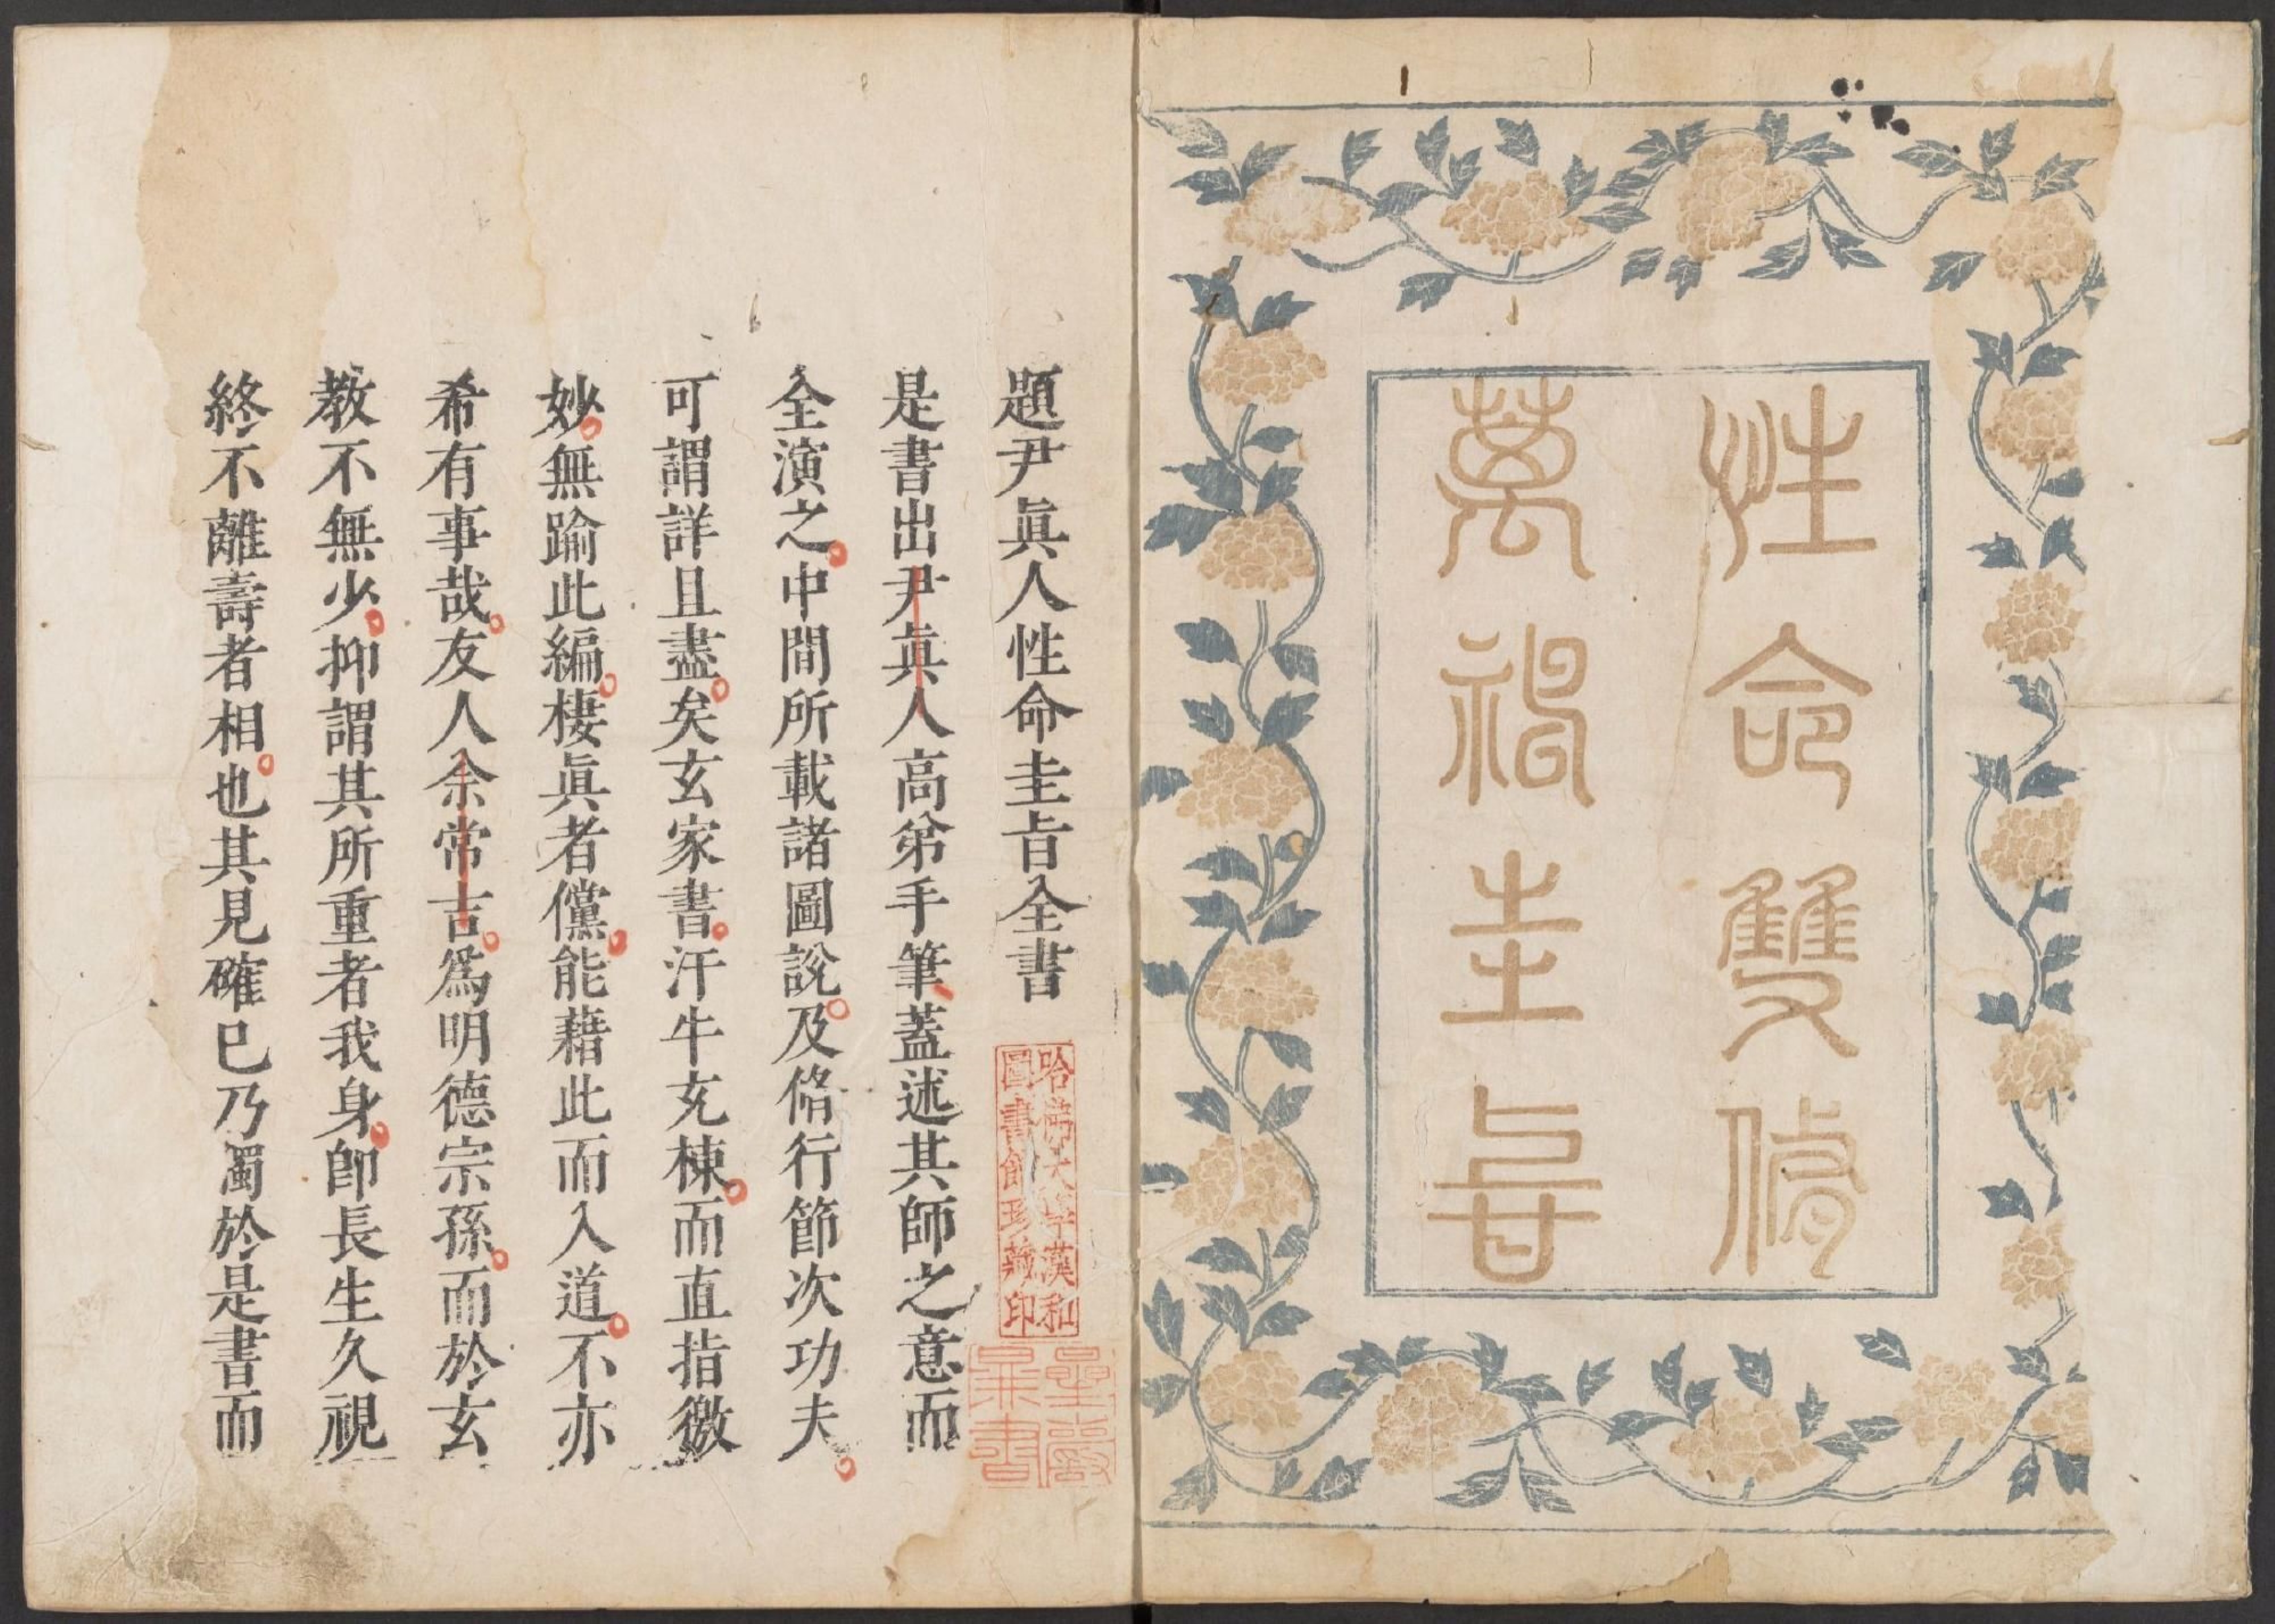 性命雙脩
萬神圭旨
題尹眞人性命圭旨全書
哈佛大學漢和
圖書館珍藏印
是書出尹眞人高弟手筆蓋述其師之意而
全演之中間所載諸圖說及脩行節次功夫
可謂詳且盡矣玄家書汗牛充棟而直指徼
妙無踰此編棲眞者儻能藉此而入道不亦
希有事哉友人余常吉爲明德宗孫而於玄
教不無少抑謂其所重者我身卽長生久視
終不離壽者相也其見確已乃獨於是書而